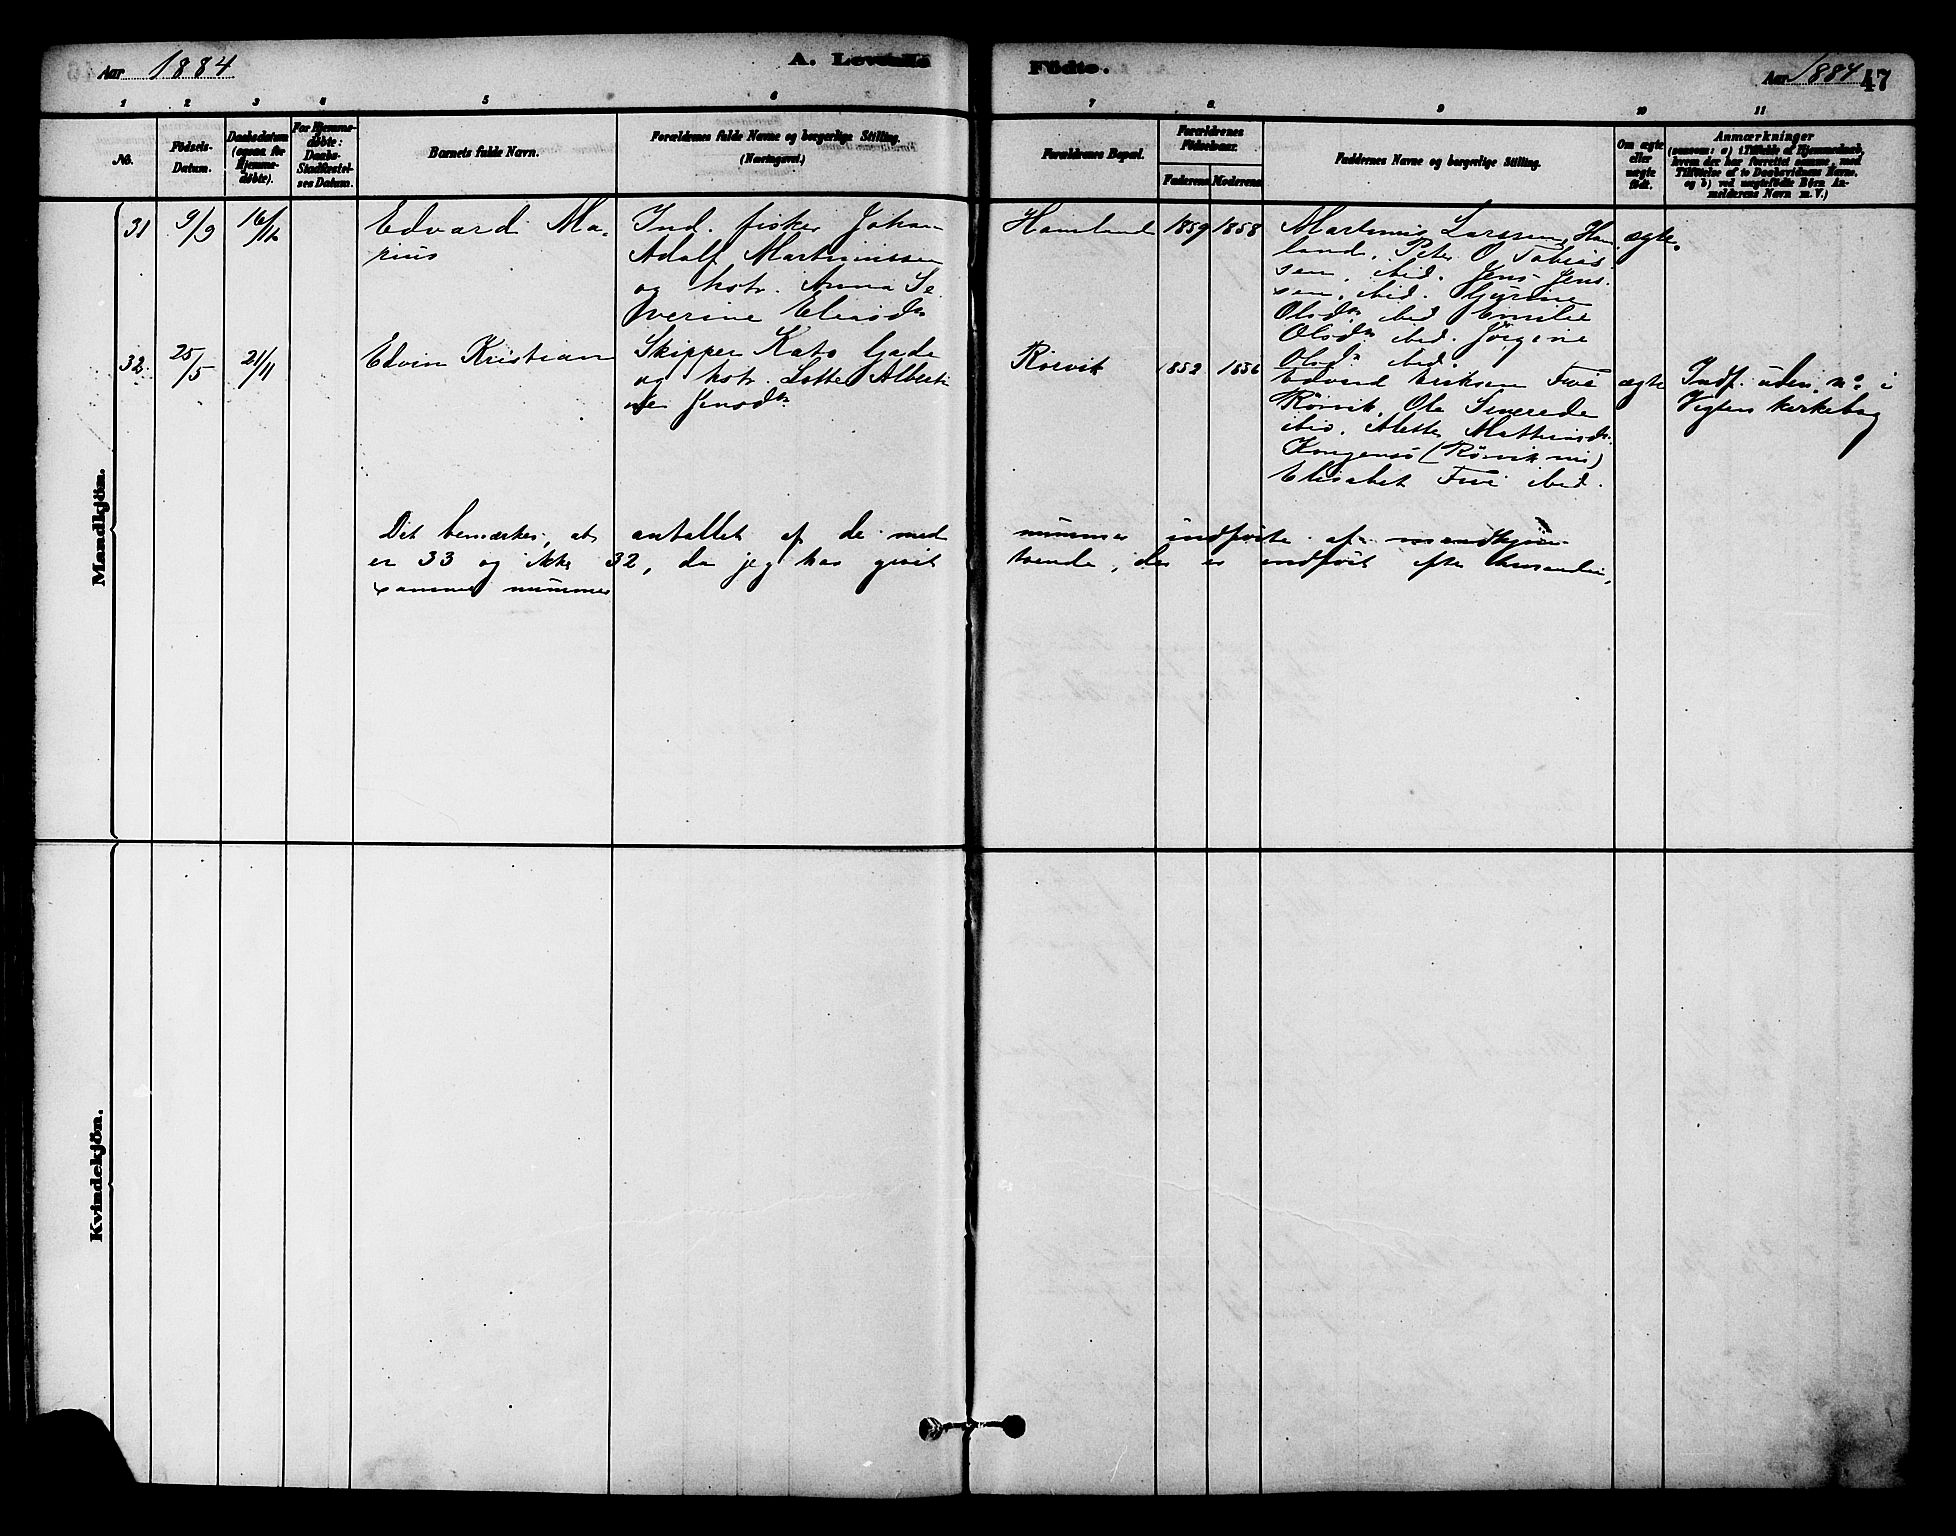 Aar 1884
A. Levende
Födte.
Aar 1884
47
1 2 3 4 5 6 7 8 9 10 11
No.
Födsels-
Datum.
Daabsdatum
(ogsaa for
Hjemme-
døbte).
For Hjemme-
døbte:
Daabs-
Stadfæstel-
ses Datum.
Barnets fulde Navn.
Forældrenes fulde Navne og borgerlige Stilling.
(Næringsvei.)
Forældrenes Bopæl.
Forældrenes
Födselsaar.
Faderens Moderens
Faddernes Navne og borgerlige Stilling.
Om ægte
eller
uægte
født.
Anmærkninger
(saasom: a) i Tilfælde af Hjemmedaab,
hvem der har forrettet samme, med
Tilføielse af to Daabsvidners Navne,
og b) ved uægtefødte Börn An-
melderens Navn m. V.)
Mandkjön.
31
9/9
16/11
Edvard Ma-
rius
Ind. fisker Johan
Adolf Martinussen
og hstr. Anna Se
verine Eliasdr
Hamland
1859
1858
Martinus Larssen, Ham
land, Peter O Tobias
sen, ibid. Jens Jens
sen, ibid. Gurine
Olsdr ibid. Emilie
Olsdr ibid. Jörgine
Olsdr ibid.
ægte.
32.
25/5
21/11
Edvin Kristian
Skipper Kato Gade
og hstr. Lotte Alberti
ne Jensdr.
Rörvik
1852
1856
Edvard Eriksen
Rörvik, Ole
ibid., Mathiasdr.
(Rörvik
Elisabet ibid.
ægte
Indf. uden no i
Vigten kirkebog
Det bemærkes, at antallet af de med nummer indførte af mandkjøn
er 33 og ikke 32, da jeg har givet tvende, der er indført efter hinanden,
samme nummer
Kvindekjön.